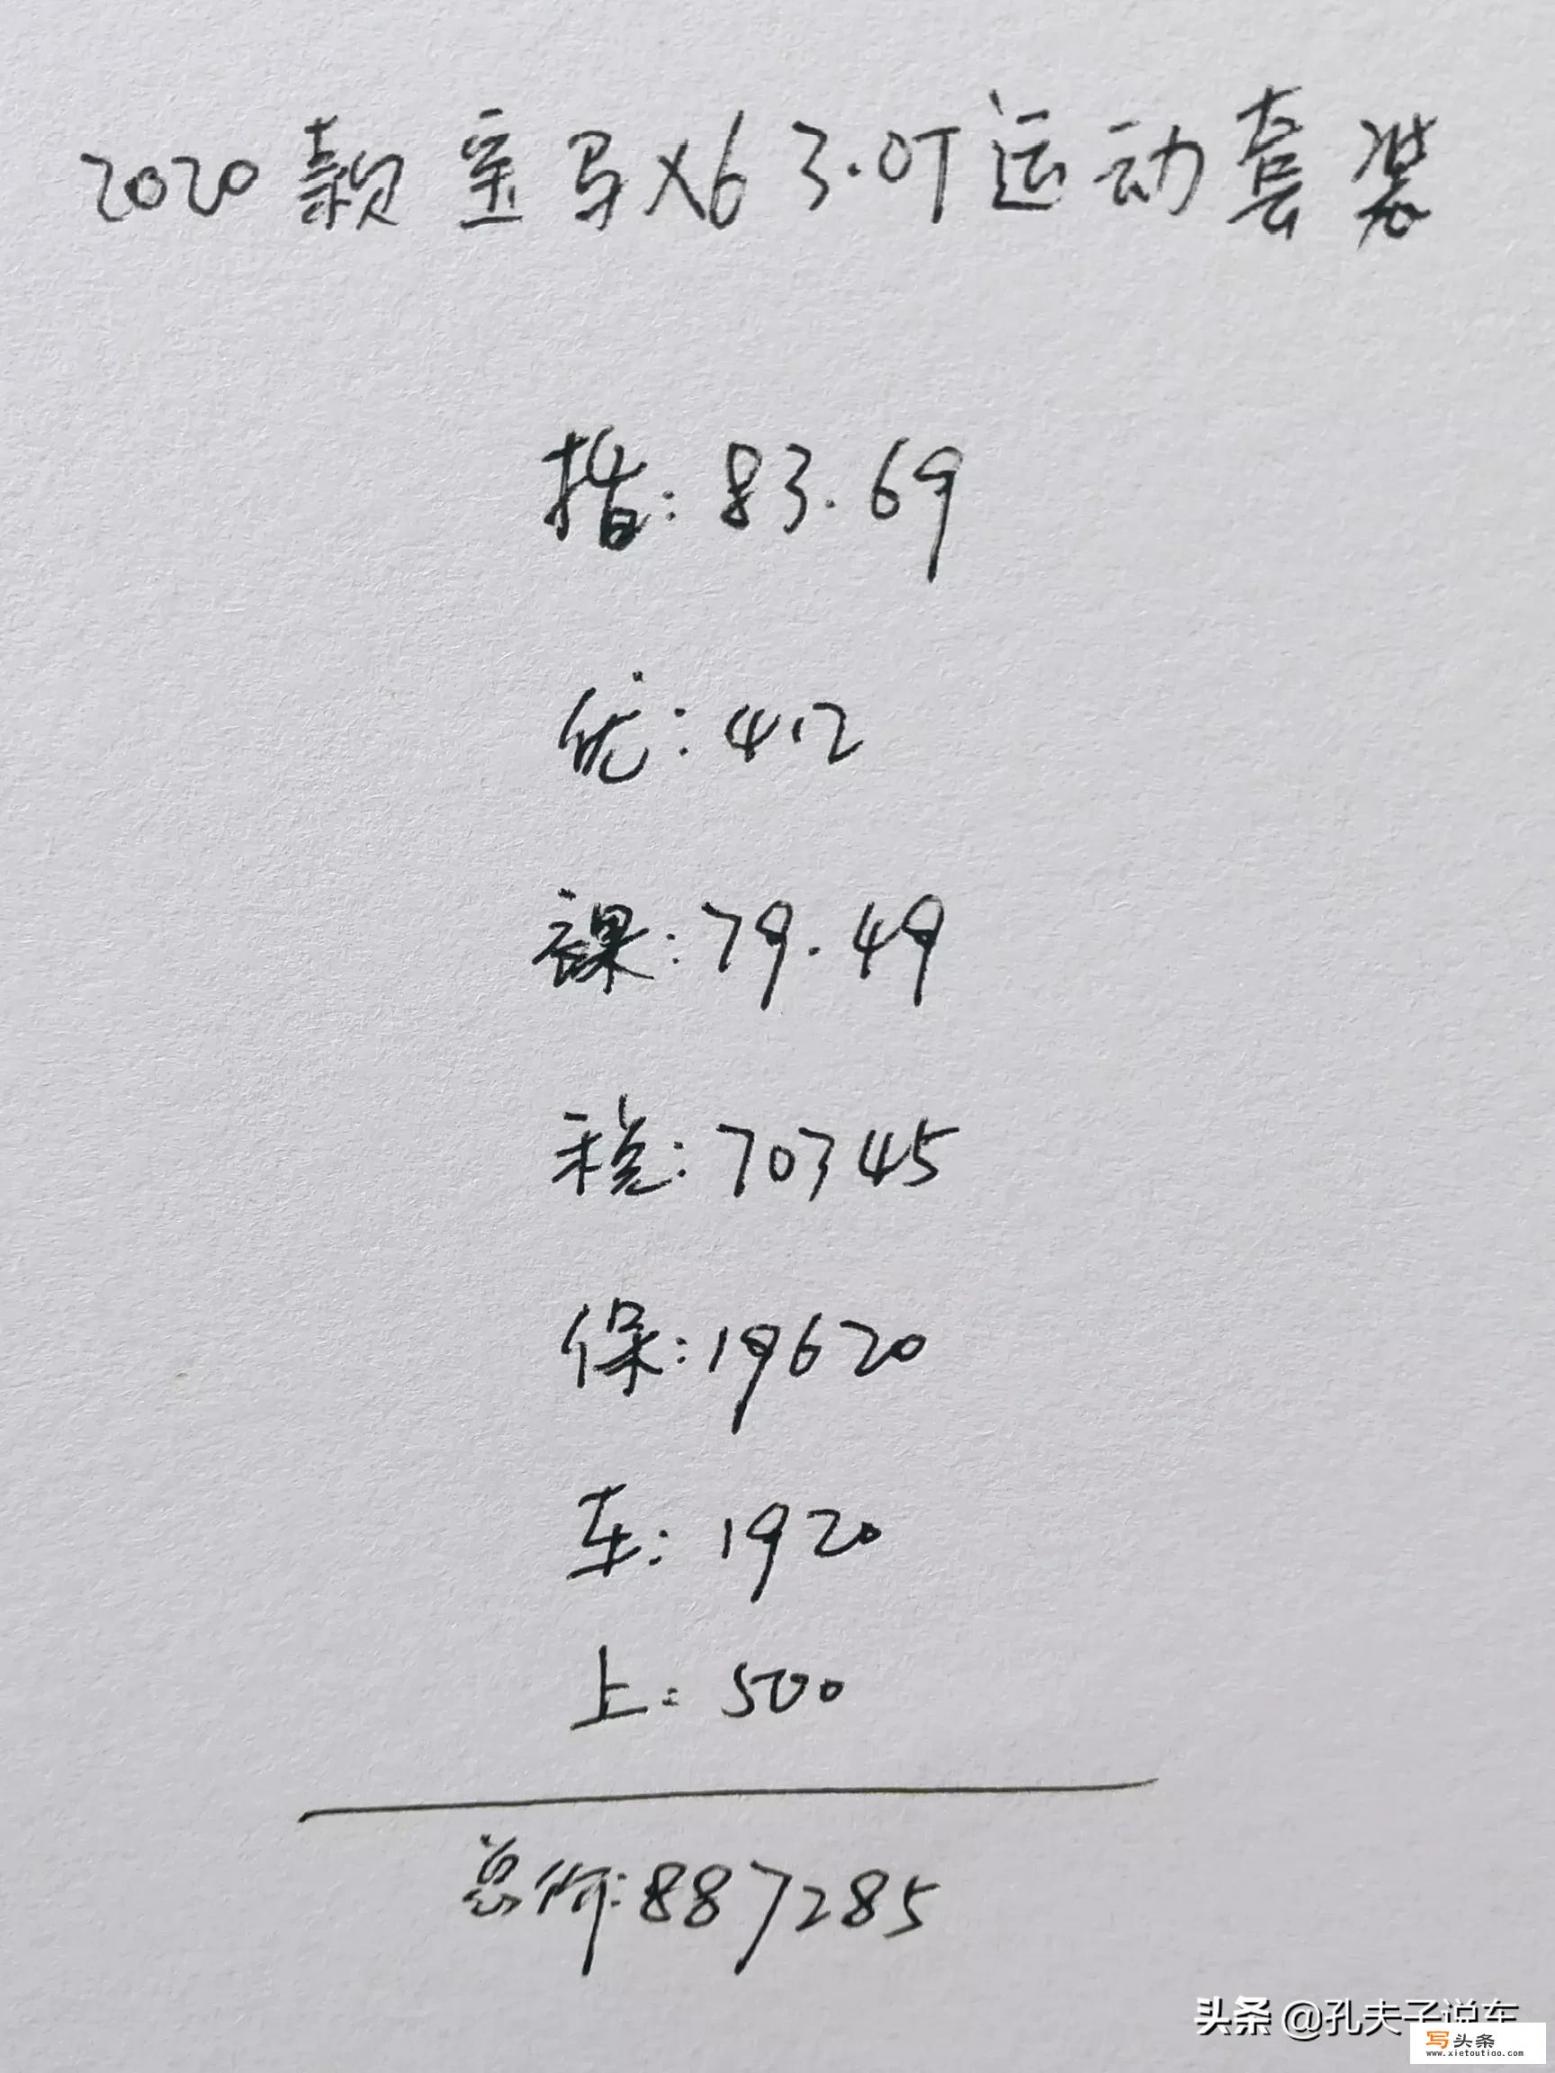 2020款宝马X6 3.0T运动套装
指:83.69
优:4.2
裸:79.49
税:70345
保:19620
车:1920
上:500
总价:887285
头条 @孔夫子说车
写头条
www.xietoutiao.com